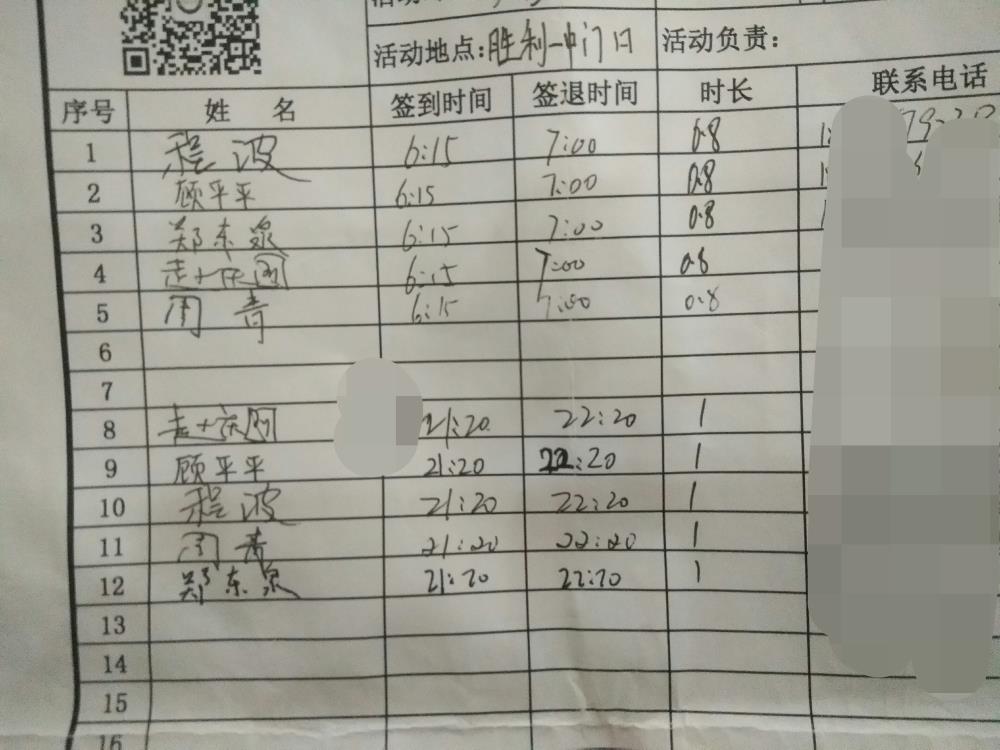 活动地点:胜利一中门口 活动负责:
序号 姓 名 签到时间 签退时间 时长 联系电话
1 程波 6:15 7:00 0.8
2 顾平平 6:15 7:00 0.8
3 郑东泉 6:15 7:00 0.8
4 6:15 7:00 0.8
5 周青 6:15 7:00 0.8
6
7
8 21:20 22:20 1
9 顾平平 21:20 22:20 1
10 程波 21:20 22:20 1
11 周青 21:20 22:20 1
12 郑东泉 21:20 22:20 1
13
14
15
16